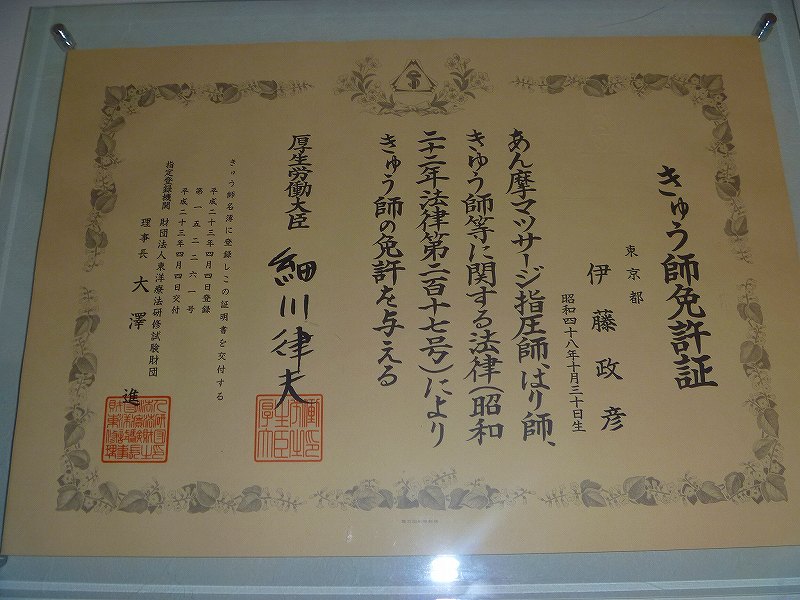 きゅう師免許証
東京都
伊藤政彦
昭和四十八年十月三十日生
あん摩マツサージ指圧師、はり師、
きゆう師等に関する法律(昭和
二十二年法律第二百十七号)により
きゅう師の免許を与える
厚生労働大臣 細川律夫
きゅう師名簿に登録しこの証明書を交付する
平成二十三年四月四日登録
第一五二二六一号
平成二十三年四月四日交付
指定登録機関 財団法人東洋療法研修試験財団
理事長 大澤 進